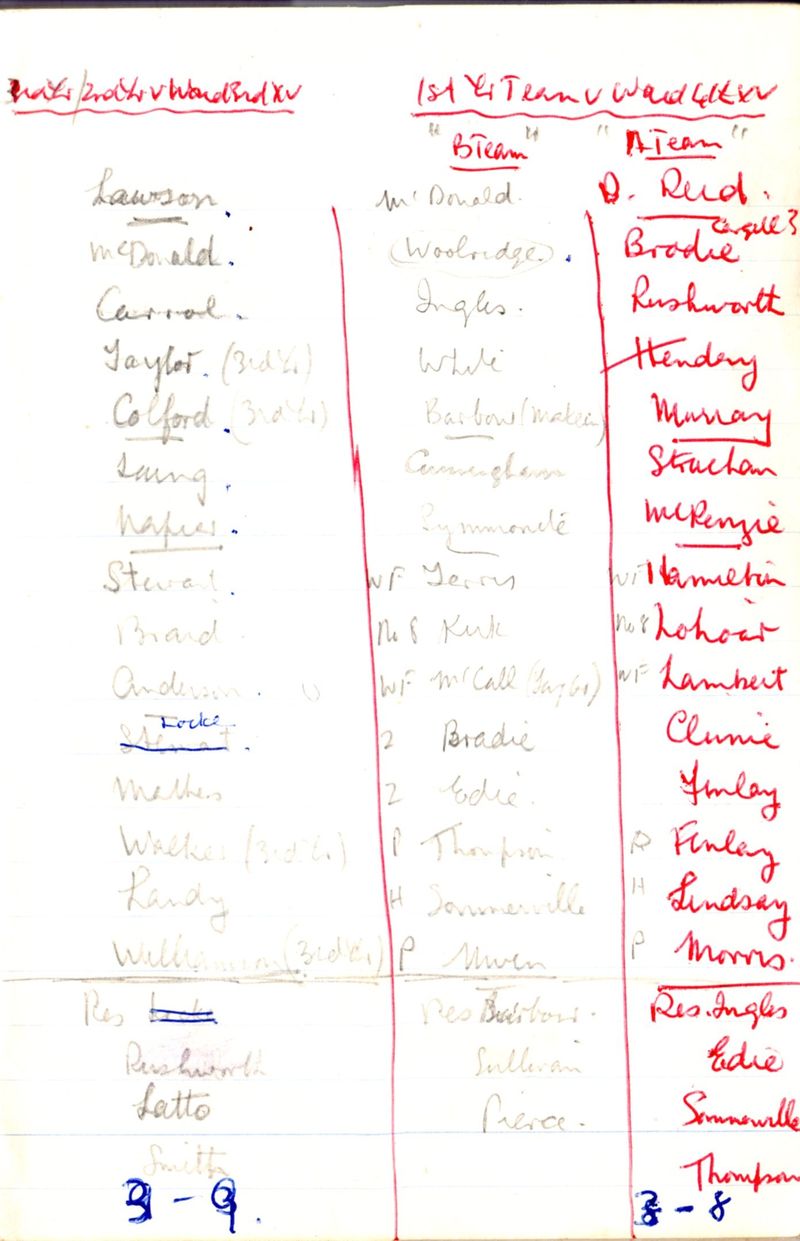 2nd Yr/3rd Yr v Waid 3rd XV
Lawson.
McDonald.
Carrol.
Taylor. (3rd Yr)
Colford (3rd Yr)
Laing.
Napier.
Stewart.
Braid.
Anderson.
Locke
Stewart.
Mathers
Walker (3rd Yr)
Landy
Williamson (3rd Yr)
Res
Rushworth
Latto
Smith
9
1st Yr Team v Waid 4th XV
"B Team"
McDonald.
(Woolridge).
Ingles.
White
Barbour (Makea)
Cunningham
Symmonds
WF Ferris
No 8 Kirk
WF McCall (Taylor)
2 Bradie
2 Edie.
P Thompson
H Sommerville
P Niven
Res Barbour.
Sullivan
Pierce.
"A Team"
D. Reid.
Cargill 3
Brodie
Rushworth
Hendry
Murray
Strachan
McKenzie
WF Hamilton
No 8 Lohoar
WF Lambert
Clunie
Finlay
P Finlay
H Lindsay
P Morris.
Res. Ingles
Edie
Sommerville
Thompson
- 8